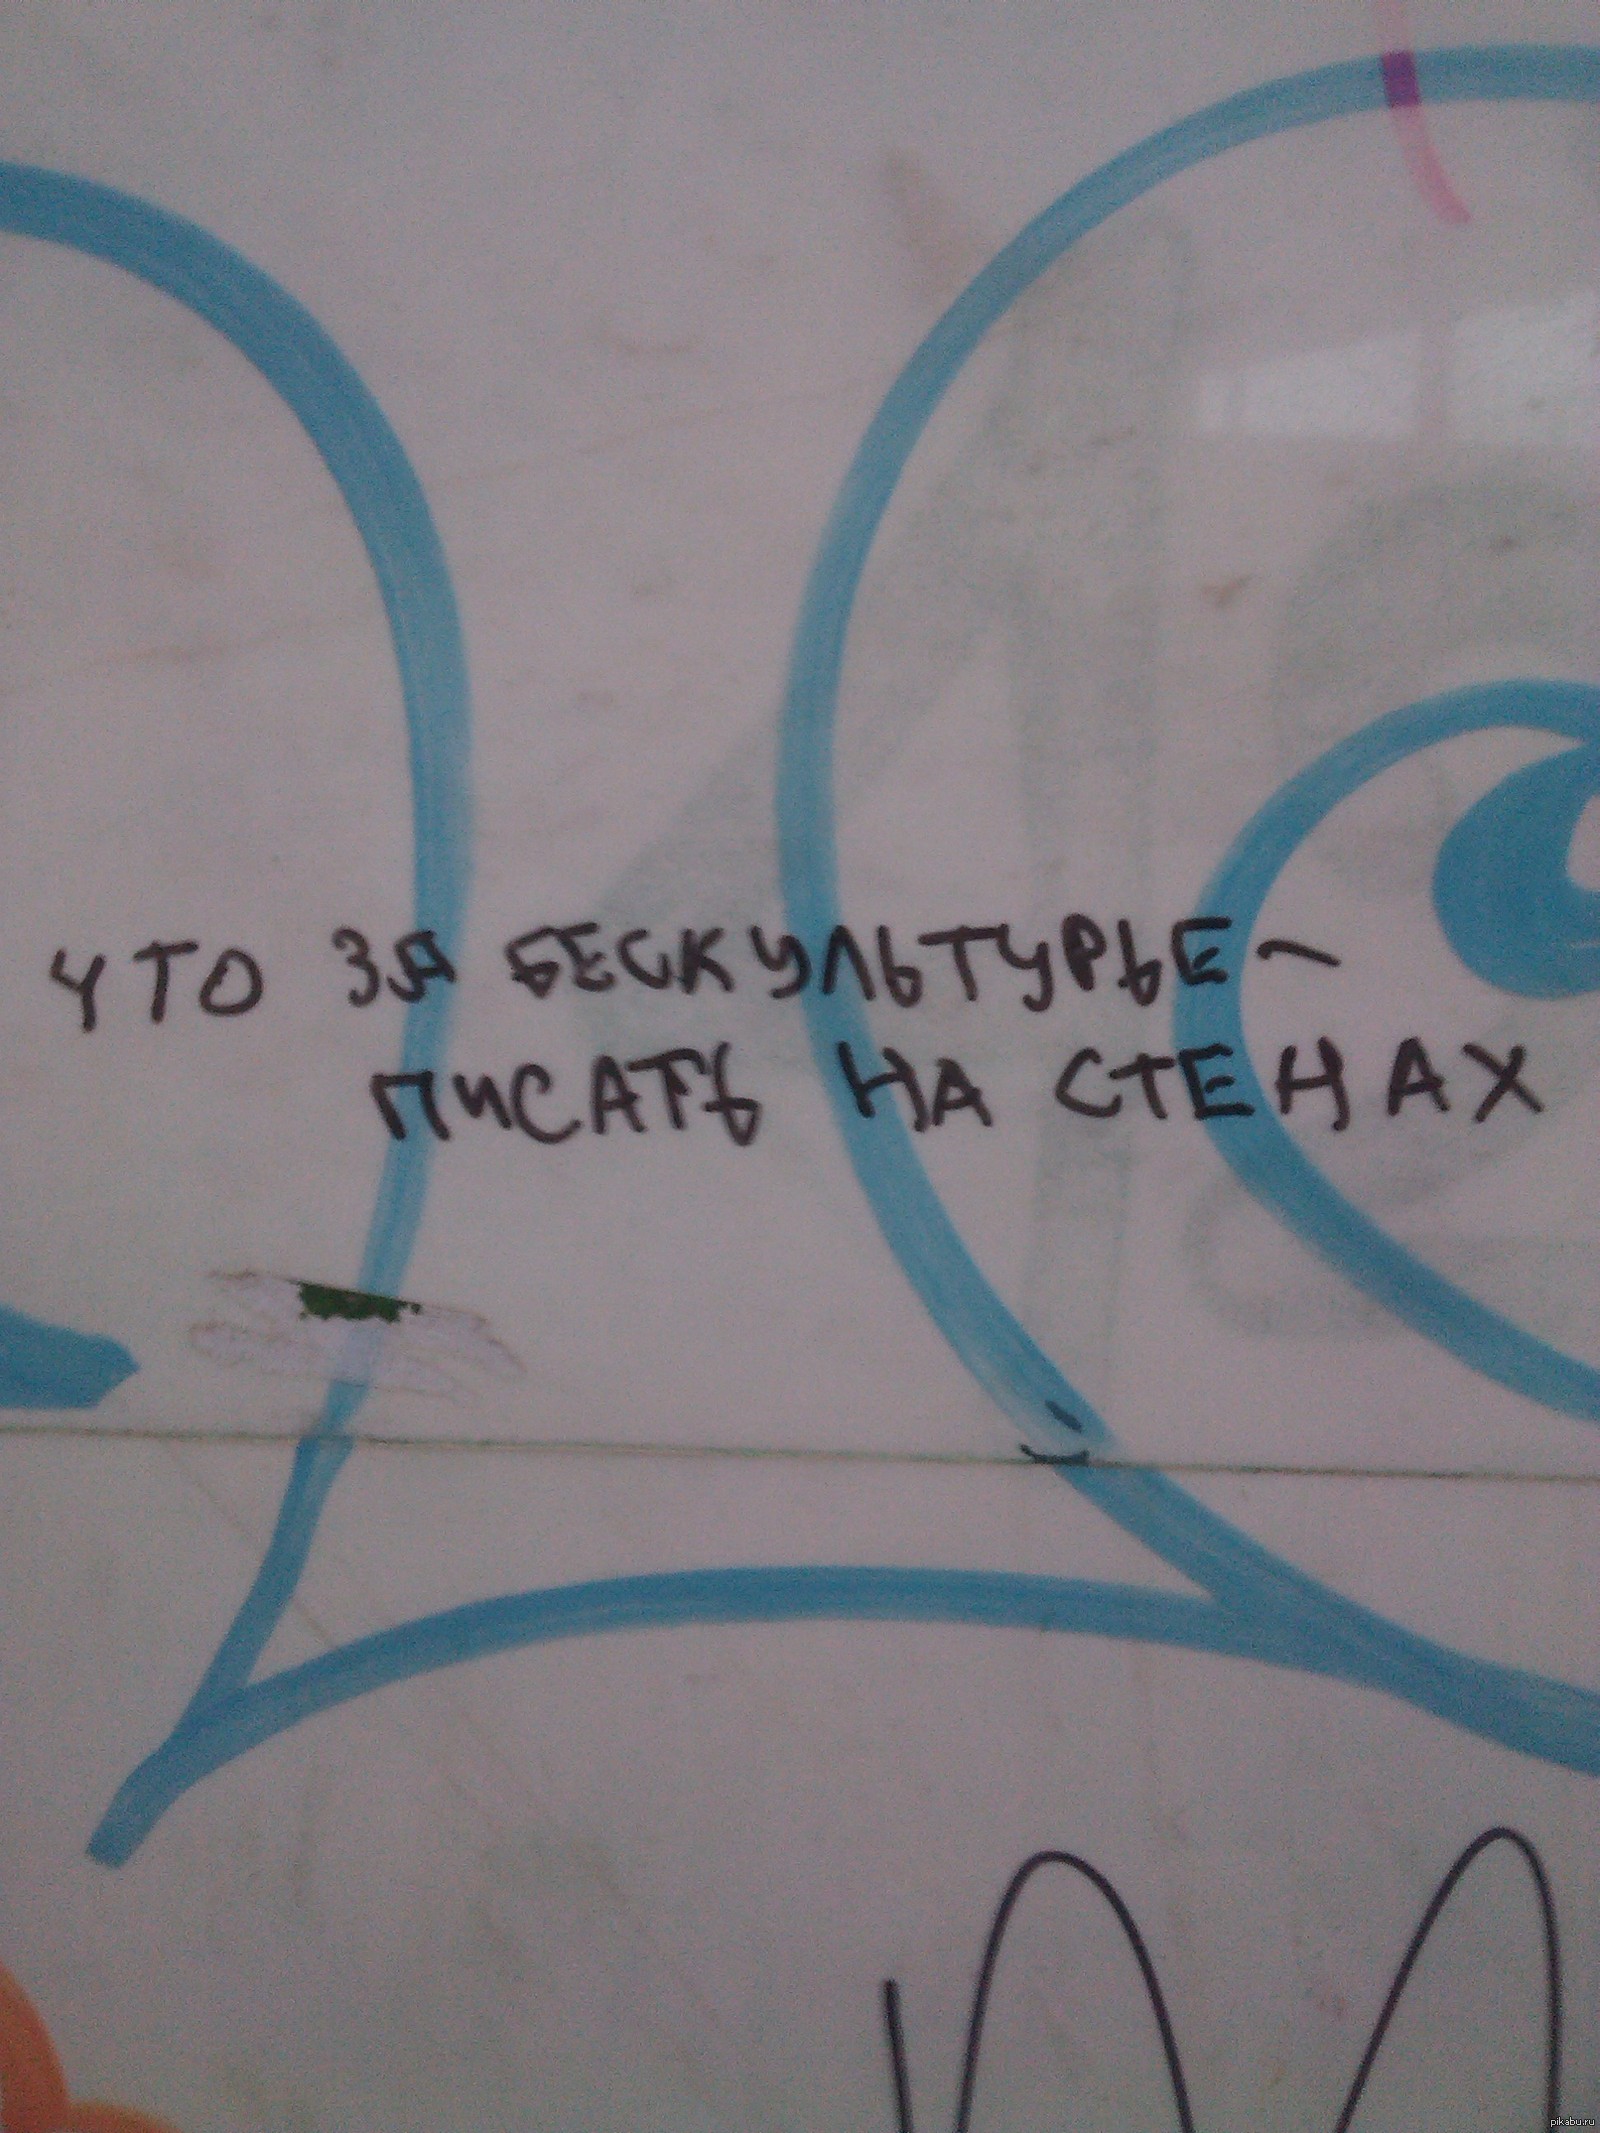 ЧТО ЗА БЕСКУЛЬТУРЬЕ –
ПИСАТЬ НА СТЕНАХ
pikabu.ru